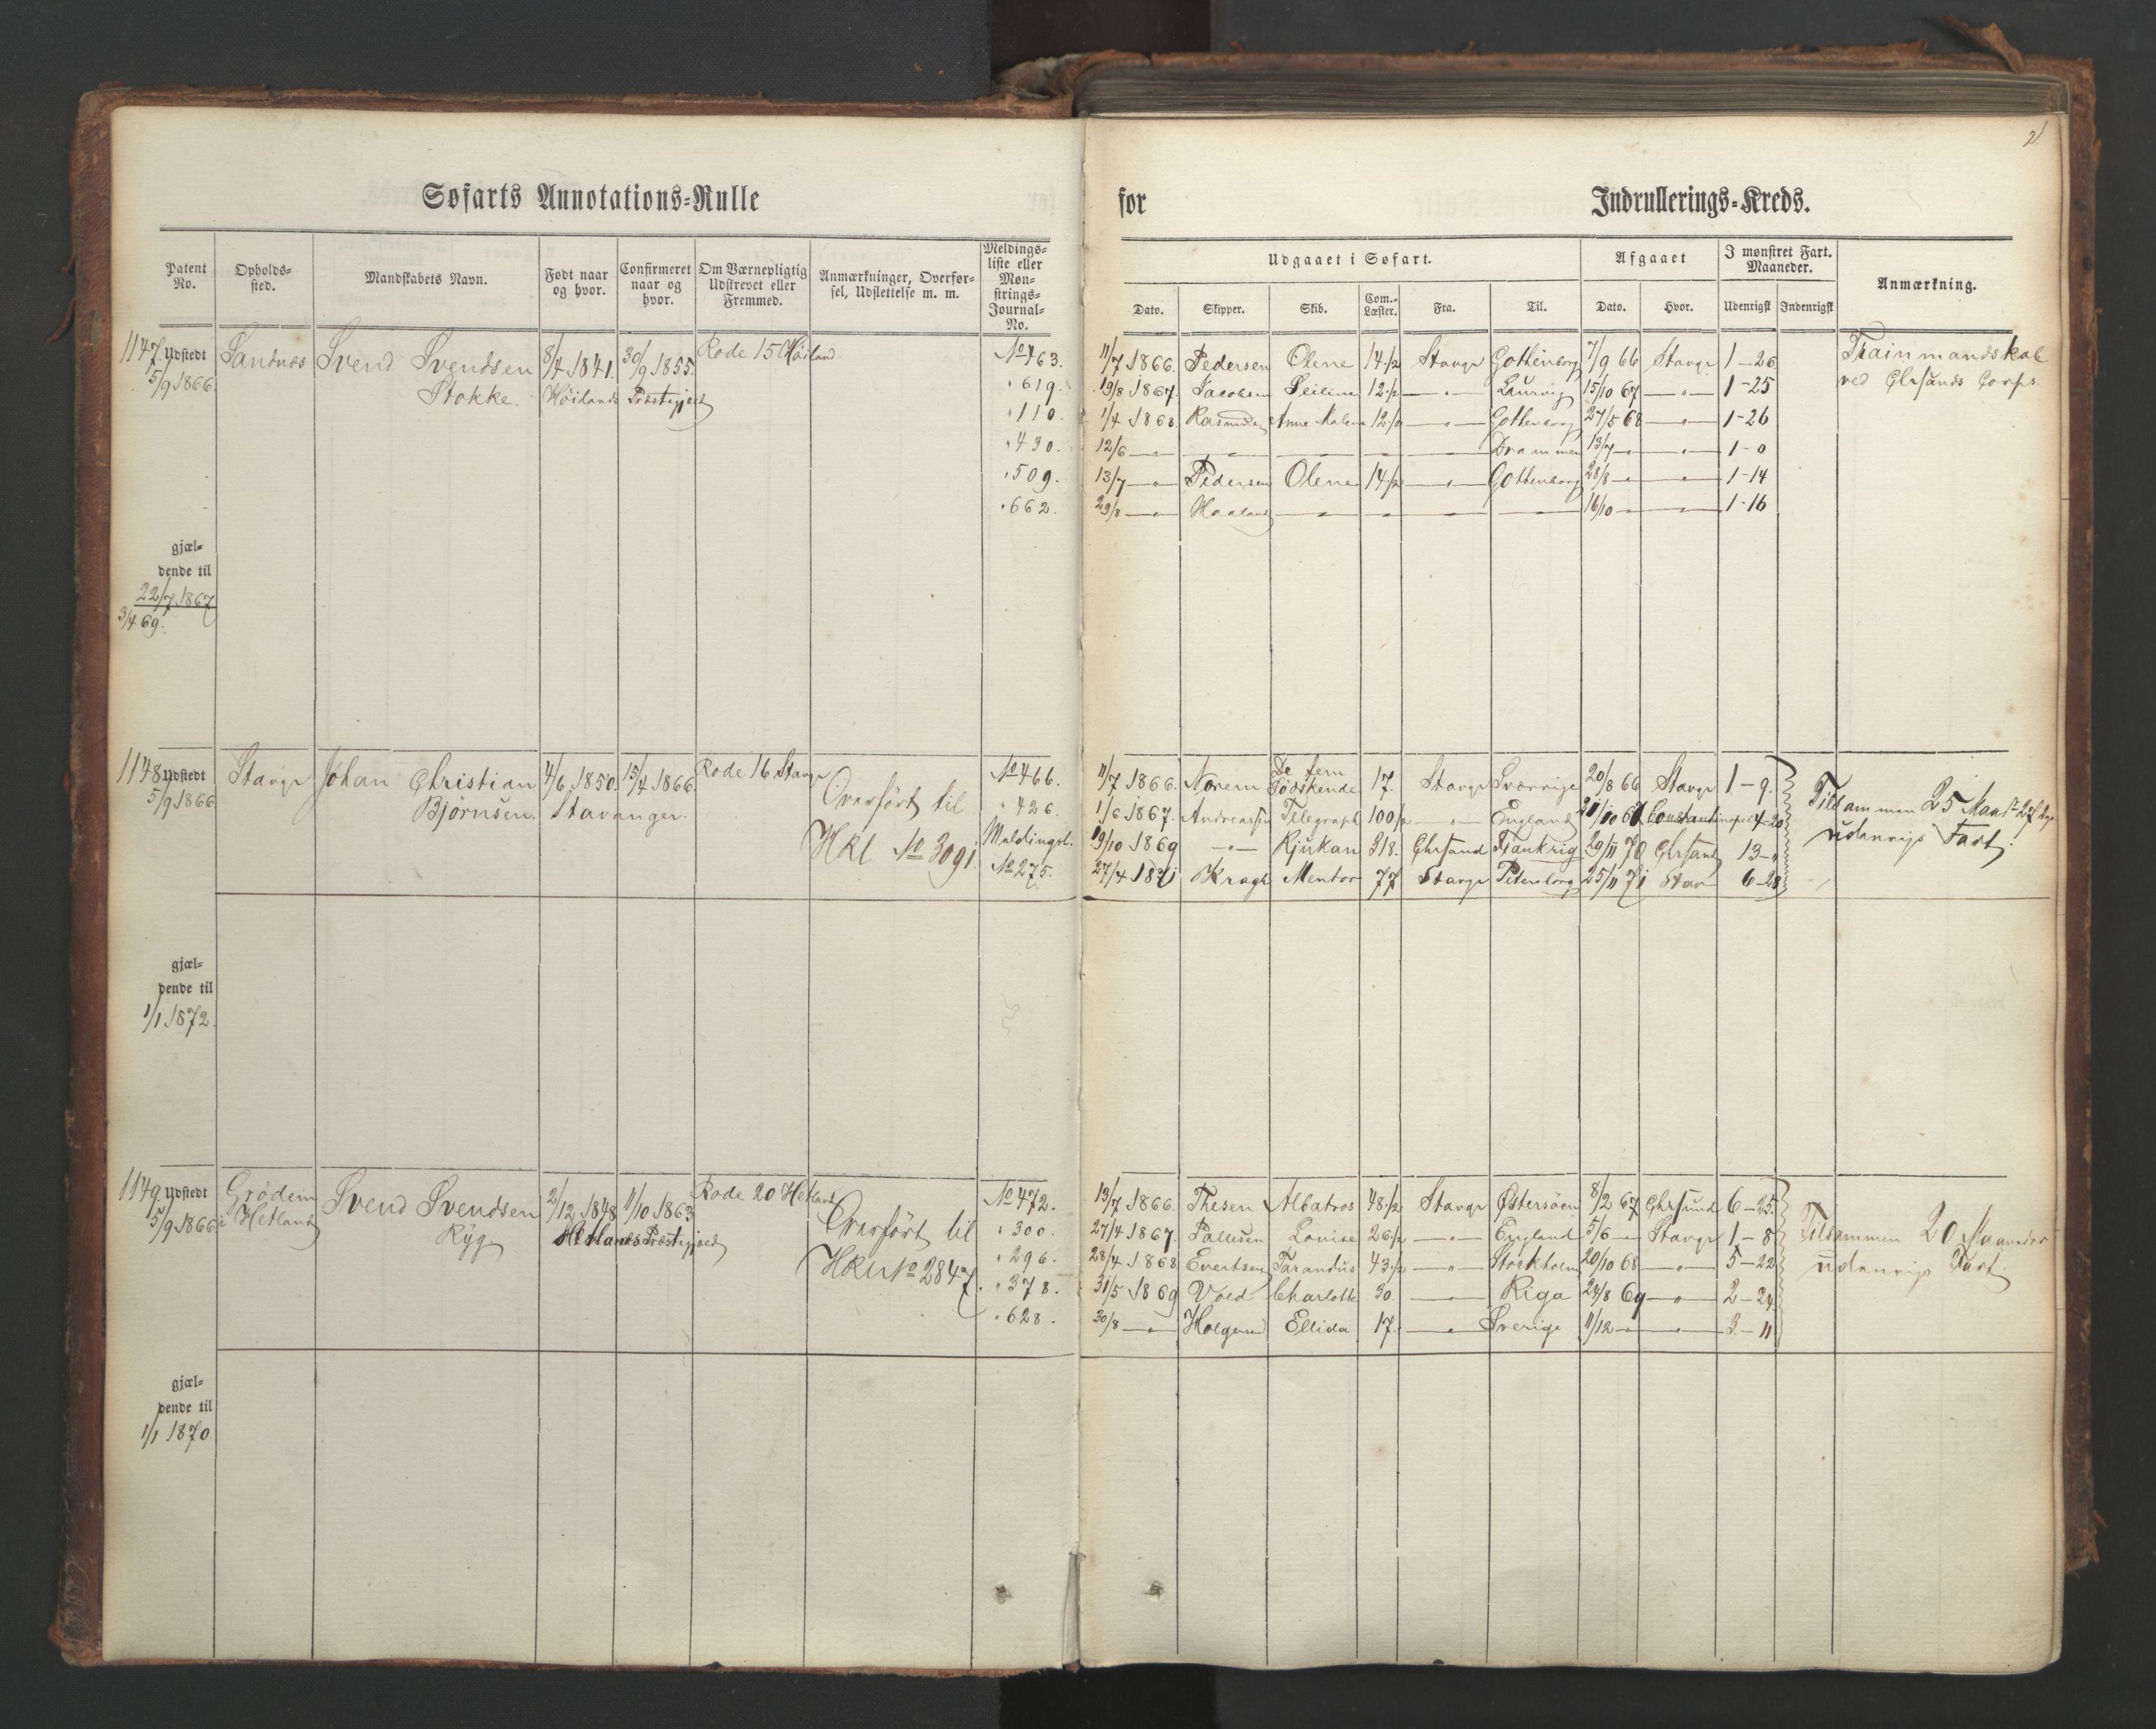 2
Søfarts Annotations-Rulle for Indrullerings-Kreds.
Patent No. | Opholds-sted. | Mandskabets Navn. | Født naar og hvor. | Confirmeret naar og hvor. | Om Værnepligtig Udskrevet eller Fremmed. | Anmærkninger, Overfør-sel, Udslettelse m. m. | Meldings-liste eller Møn-strings-Journal-No.
Udgaaet i Søfart. | Afgaaet | I mønstret Fart. Maaneder. | Anmærkning.
Dato. | Skipper. | Skib. | Com.-Læster. | Fra. | Til. | Dato. | Hvor. | Udenrigsk | Indenrigsk
1147. Udstedt 5/9 1866. | Sandnæs | Svend Svendsen Stokke. | 8/4 1841. Høilands | 30/9 1855. Præstegjeld | Rode 15 Høiland.
No 463. | 11/7 1866. | Pedersen | Olene | 14 1/2 | Stavgr | Gothenborg | 7/9 66 | Stavgr | 1-26
" 619. | 19/8 1867. | Jacobsen | 12 1/2 | — " — | Laurvig | 15/10 67 | — " — | 1-25
" 110. | 1/4 1868. | Anne Malene | 12 1/2 | — " — | Gothenborg | 27/5 68 | — " — | 1-26
" 430. | 12/6 — " — | — " — | — " — | — " — | — " — | Drammen | 13/7 — " — | — " — | 1-0
" 509. | 13/7 — " — | Pedersen | Olene | 14 1/2 | — " — | Gottenborg | 28/8 — " — | — " — | 1-14
" 662. | 29/8 — " — | Haaland | — " — | — " — | — " — | — " — | 16/10 — " — | — " — | 1-16
Trainmandskab
ved Chrsands Corps.
gjæl-
dende til
22/7 1867
3/4 69.
1148 Udstedt 5/9 1866 | Stavgr | Johan Christian Bjørnsen. | 4/6 1850. Stavanger. | 15/4 1866. | Rode 16 Stavgr | Overført til HRl No 3091.
No 466. | 11/7 1866. | Norem | De fem Södskende | 17. | Stavgr | Sverrige | 20/8 66 | Stavgr | 1-9.
" 426. | 1/6 1867. | Andreassen | Telegraph | 100 1/2 | — " — | England | Constantinopel | 4-20
Meldingsl. | 19/10 1869 | — " — | Rjukan | 318. | Chrsand | Frankrig | 29/11 70 | Chrsand | 13-"
No 275. | 27/4 1871 | Kragh | Mentor | 77 | Stavgr | Petersborg | 25/11 71 | Stav | 6-28
Tilsammen 25 Maadr 27 Dge
udenrigs Fart.
gjæl-
dende til
1/1 1872.
1149. Udstedt 5/9 1866 | Grödem i Hetland | Svend Svendsen Ryg | 2/12 1848 Hetlands | 11/10 1863 Præstegjeld | Rode 20 Hetland | Overført til HRl No 2847.
No 472. | 13/7 1866. | Thesen | Albatros | 48 1/2 | Stavgr | Østersöen | 8/2 67 | Chrsund | 6-25.
" 300. | 27/4 1867. | Pallesen | Lovise | 26 1/2 | — " — | England | 5/6 — " — | Stavgr | 1-8
" 296. | 28/4 1868 | Evertsen | Tarandus | 43 1/2 | — " — | Stockholm | 20/10 68 | — " — | 5-22
" 378. | 31/5 1869 | Voed | Charlotte | 30. | — " — | Riga | 24/8 69 | — " — | 2-24.
" 628. | 30/8 — " — | Holgersen | Ellida | 17. | — " — | Sverige | 11/12 — " — | — " — | 3-11
Tilsammen 20 Maaneder
udenrigs Fart.
gjæl-
dende til
1/1 1870.